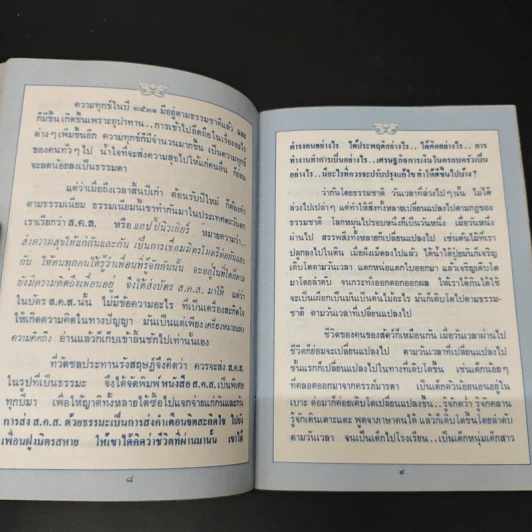 ความทุกข์ในปี ๒๕๓๑ มีอยู่ตามธรรมชาติแล้ว และ
ก็มีขึ้น เกิดขึ้นเพราะอุปาทาน..การเข้าไปยึดถือในเรื่องอะไร
ต่างๆเพิ่มขึ้นอีก ความทุกข์ก็มีจำนวนมากขึ้น เป็นความทุกข์
ของคนทั่วๆไป น้ำใจที่จะส่งความสุขไปให้แก่คนอื่น ก็ยังพอ
จะลดน้อยลงเป็นธรรมดา
แต่ว่าเมื่อถึงเวลาสิ้นปีเก่า ต้อนรับปีใหม่ ก็ต้องทำ
ตามธรรมเนียม ธรรมเนียมนี้เขาทำกันมาในประเทศตะวันตก
เราเรียกว่า ส.ค.ส. หรือ แฮปปี้นิวเยียร์ หมายความว่า..
ส่งความสุขให้แก่กันและกัน เป็นการเชื่อมมิตรไมตรีต่อกันและ
กัน ให้คนทุกคนได้รู้ว่าเพื่อนที่รักกันนั้น จะอยู่ในที่ใดก็ตาม
ยังมีความคิดถึงเพื่อนอยู่ จึงได้ส่งบัตร ส.ค.ส. มาให้ แต่ว่า
ในบัตร ส.ค.ส.นั้น ไม่มีข้อความอะไร ที่เป็นเครื่องสะกิดใจ
ให้เกิดความคิดในทางปัญญา มันเป็นแต่เพียงเครื่องหมายแห่ง
ความคิดถึง อ่านแล้วก็เก็บเข้าลิ้นชักไปเท่านั้นเอง
ที่วัดชลประทานรังสฤษฎิ์จึงคิดว่า ควรจะส่ง ส.ค.ส.
ในรูปที่เป็นธรรมะ จึงได้จัดพิมพ์ หนังสือ ส.ค.ส.เป็นพิเศษ
ทุกปีมา เพื่อให้ญาติทั้งหลายได้ซื้อไปแจกจ่ายแก่กันและกัน
การส่ง ส.ค.ส. ด้วยธรรมะเป็นการส่งคำเตือนจิตสะกิดใจ ไปยัง
เพื่อนฝูงมิตรสหาย ให้เขาได้คิดว่าชีวิตที่ผ่านมานั้น เขาได้
๘
ดำรงตนอย่างไร ได้ประพฤติอย่างไร.. ได้คิดอย่างไร.. การ
ทำงานทำการเป็นอย่างไร..เศรษฐกิจการเงินในครอบครัวเป็น
อย่างไร.. มีอะไรที่ควรจะปรับปรุงแก้ไข ทำให้ดีขึ้นไปบ้าง?
ว่ากันโดยธรรมชาติ วันเวลาที่ล่วงไปๆนั้น ไม่ได้
ล่วงไปเปล่าๆ แต่ทำให้สิ่งทั้งหลายเปลี่ยนแปลงไปตามกฎของ
ธรรมชาติ โลกหมุนไปรอบหนึ่งก็เป็นวันหนึ่ง เมื่อวันหนึ่ง
ผ่านไป สรรพสิ่งทั้งหลายก็เปลี่ยนแปลงไป เช่นต้นไม้ที่เรา
ปลูกลงไปในดิน เมื่อฝังเมล็ดลงไปแล้ว ได้น้ำได้ปุ๋ยมันก็เจริญ
เติบโตตามวันเวลา แตกหน่อแตกใบออกมา แล้วเจริญเติบโต
มาโดยลำดับ จนกระทั่งออกดอกออกผล ให้เราได้กินได้ใช้
จะเป็นเผือกเป็นมันเป็นต้นไม้อะไร มันก็เติบโตไปตามธรรม-
ชาติ ตามวันเวลาที่เปลี่ยนแปลงไป
ชีวิตของคนของสัตว์ก็เหมือนกัน เมื่อวันเวลาผ่านไป
ชีวิตก็ย่อมจะเปลี่ยนแปลงไป ตามวันเวลาที่เปลี่ยนแปลงไป
ชั้นแรกก็เปลี่ยนแปลงไปในทางที่เติบโตขึ้น เช่นเด็กน้อยๆ
ที่คลอดออกมาจากครรภ์มารดา เป็นเด็กตัวน้อยนอนอยู่ใน
เบาะ ต่อมาก็ค่อยเติบโตเปลี่ยนแปลงขึ้น..รู้จักคว่ำ รู้จักคลาน
รู้จักเดินเตาะแตะ พูดจาภาษาคนได้ แล้วก็เติบโตขึ้นโดยลำดับ
ตามวันเวลา จนเป็นเด็กไปโรงเรียน...เป็นเด็กหนุ่มเด็กสาว
๙